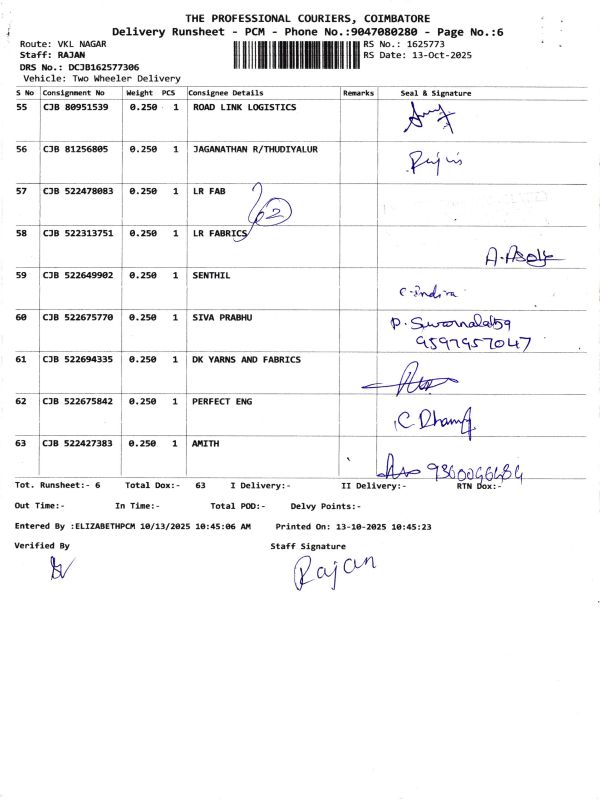 THE PROFESSIONAL COURIERS, COIMBATORE
Delivery Runsheet - PCM - Phone No.:9047080280 - Page No.:6
Route: VKL NAGAR RS No.: 1625773
Staff: RAJAN RS Date: 13-Oct-2025
DRS No.: DCJB162577306
Vehicle: Two Wheeler Delivery
S No Consignment No Weight PCS Consignee Details Remarks Seal & Signature
55 CJB 80951539 0.250 1 ROAD LINK LOGISTICS
56 CJB 81256805 0.250 1 JAGANATHAN R/THUDIYALUR
57 CJB 522478083 0.250 1 LR FAB
62
58 CJB 522313751 0.250 1 LR FABRICS
59 CJB 522649902 0.250 1 SENTHIL
C. Indira
60 CJB 522675770 0.250 1 SIVA PRABHU P.
9597957047
61 CJB 522694335 0.250 1 DK YARNS AND FABRICS
62 CJB 522675842 0.250 1 PERFECT ENG
63 CJB 522427383 0.250 1 AMITH
Tot. Runsheet:- 6 Total Dox:- 63 I Delivery:- II Delivery:- RTN Dox:-
Out Time:- In Time:- Total POD:- Delvy Points:-
Entered By :ELIZABETHPCM 10/13/2025 10:45:06 AM Printed On: 13-10-2025 10:45:23
Verified By Staff Signature
Rajan